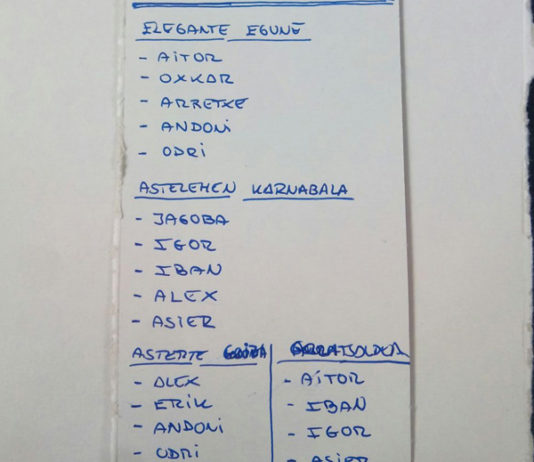 ELEGANTE EGUNE
- AITOR
- OXKAR
- ARRETXE
- ANDONI
- ODRI
ASTELEHEN KARNABALA
- JAGOBA
- IGOR
- IBAN
- ALEX
- ASIER
ASTERTE
- ALEX
- ERIK
- ANDONI
- ODRI
- AITOR
- IBAN
- IGOR
- ASIER